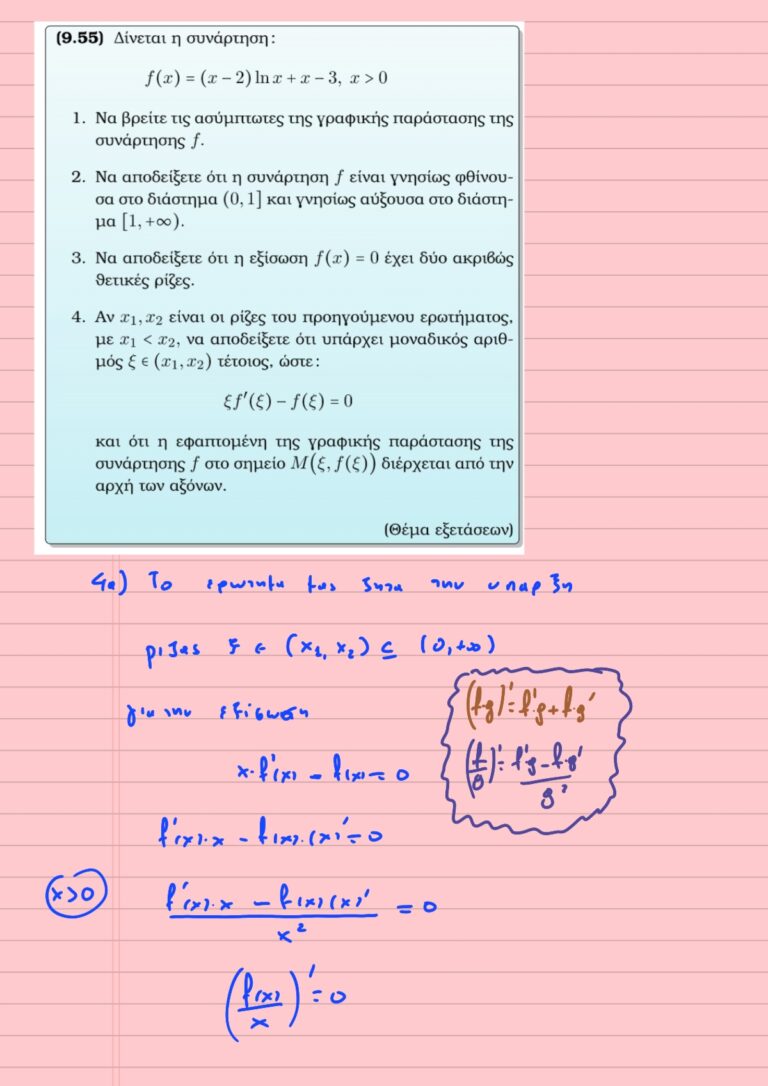 (9.55) Δίνεται η συνάρτηση:
f(x) = (x − 2) ln x + x − 3, x > 0
1. Να βρείτε τις ασύμπτωτες της γραφικής παράστασης της
συνάρτησης f.
2. Να αποδείξετε ότι η συνάρτηση f είναι γνησίως φθίνου-
σα στο διάστημα (0, 1] και γνησίως αύξουσα στο διάστη-
μα [1, +∞).
3. Να αποδείξετε ότι η εξίσωση f(x) = 0 έχει δύο ακριβώς
θετικές ρίζες.
4. Αν x₁, x₂ είναι οι ρίζες του προηγούμενου ερωτήματος,
με x₁ < x₂, να αποδείξετε ότι υπάρχει μοναδικός αριθ-
μός ξ ∈ (x₁, x₂) τέτοιος, ώστε:
ξf′(ξ) − f(ξ) = 0
και ότι η εφαπτομένη της γραφικής παράστασης της
συνάρτησης f στο σημείο M(ξ, f(ξ)) διέρχεται από την
αρχή των αξόνων.
(Θέμα εξετάσεων)
4α) Το ερωτημα μας ζητα την υπαρξη
ριζας ξ ∈ (x₁, x₂) ⊆ (0, +∞)
για την εξίσωση
(f·g)' = f'·g + f·g'
(f/g)' = (f'·g − f·g')/g²
x·f'(x) − f(x) = 0
f'(x)·x − f(x)·(x)' = 0
x>0
(f'(x)·x − f(x)(x)')/x² = 0
(f(x)/x)' = 0